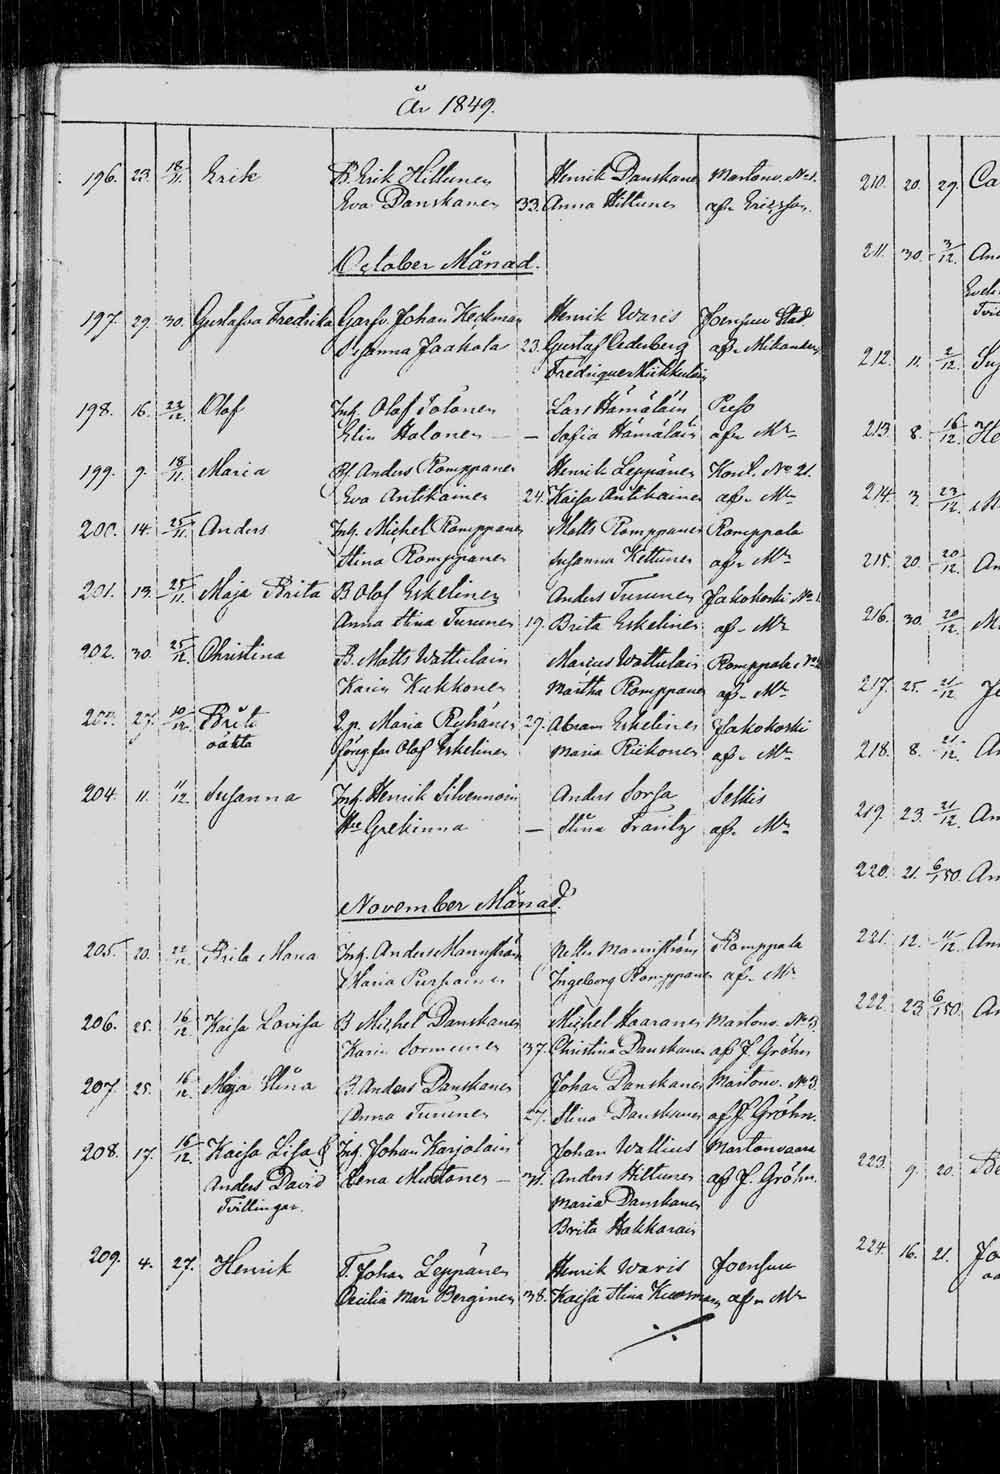 År 1849.
196. 23. 18/11. Erik B. Erik Hiltunen Henrik Danskane Martonv. No 1.
Eva Danskanen 33. Anna Hiltunen af
October Månad.
197. 29. 30. Gustafva Fredrika Garfv. Johan Keckman Henrik Waris Joensuu Stad
Susanna Jaakola 23. Gustaf Cederberg af
198. 16. 22/12. Olof Inh. Olof Tolonen Lars Hämäläin
Elin Halonen — — Sofia Hämäläin af Mr
199. 9. 18/11. Maria Anders Romppanen Henrik Leppänen Kont. No 21.
Eva Antikainen 24. Kaisa Antikainen af Mr
200. 14. 25/11. Anders Inh. Michel Romppanen Matts Romppanen Romppala
Stina Romppanen Susanna Kettunen af Mr
201. 13. 25/11. Maja Brita B Olof Eskelinen Anders Turunen Jakokoski No 1.
Anna Stina Turunen 19. Brita Eskelinen af Mr
202. 30. 25/12. Christina B. Matts Wattulain Marcus Wattulain Romppala No
Karin Kukkonen Martha Romppanen af Mr
203. 27. 10/12. Brita Q.p. Maria Ryhänen 27. Abram Eskelinen Jakokoski
oäkta Olof Eskelinen Maria Riikonen af Mr
204. 11. 11/12. Susanna Inh. Henrik Silvennoin Anders Sorsa Selkis
— Stina af Mr
November Månad.
205. 20. 22/12. Brita Maria Inh. Anders Mannström Mannström Romppala
Maria Ingeborg Romppanen af Mr
206. 25. 16/12. Kaisa Lovisa B Michel Danskanen Michel Haaranen Martonv. No 3.
Karin Sormunen 37. Christina Danskanen af J. Gröhn
207. 25. 16/12. Maja Stina B. Anders Danskanen Johan Danskanen Martonv. No 3
Anna Turunen 27. Stina Danskanen af J. Gröhn.
208. 17. 16/12. Kaisa Lisa & Inh. Johan Karjolain Johan Wallius Martonvaara
Anders David Lena Multonen — 31. Anders Hiltunen af J. Gröhn.
Tvillingar. Maria Danskanen
Brita Hakkarain
209. 4. 27. Henrik T. Johan Leppänen Henrik Waris Joensuu
Cecilia Mar. Berginen 38. Kaisa Stina Kuosman af Mr
210. 20. 29. Ca
211. 30. 3/12. An
212. 11. 2/12.
213. 8. 16/12. He
214. 3. 23/12. M
215. 20. 20/12. An
216. 30. 20/12. M
217. 25. 21/12. Jo
218. 8. 21/12. A
219. 23. 21/12. An
220. 21. 6/1 50. An
221. 12. 11/12. An
222. 23. 6/1 50. An
223. 9. 20.
224. 16. 21. Jo